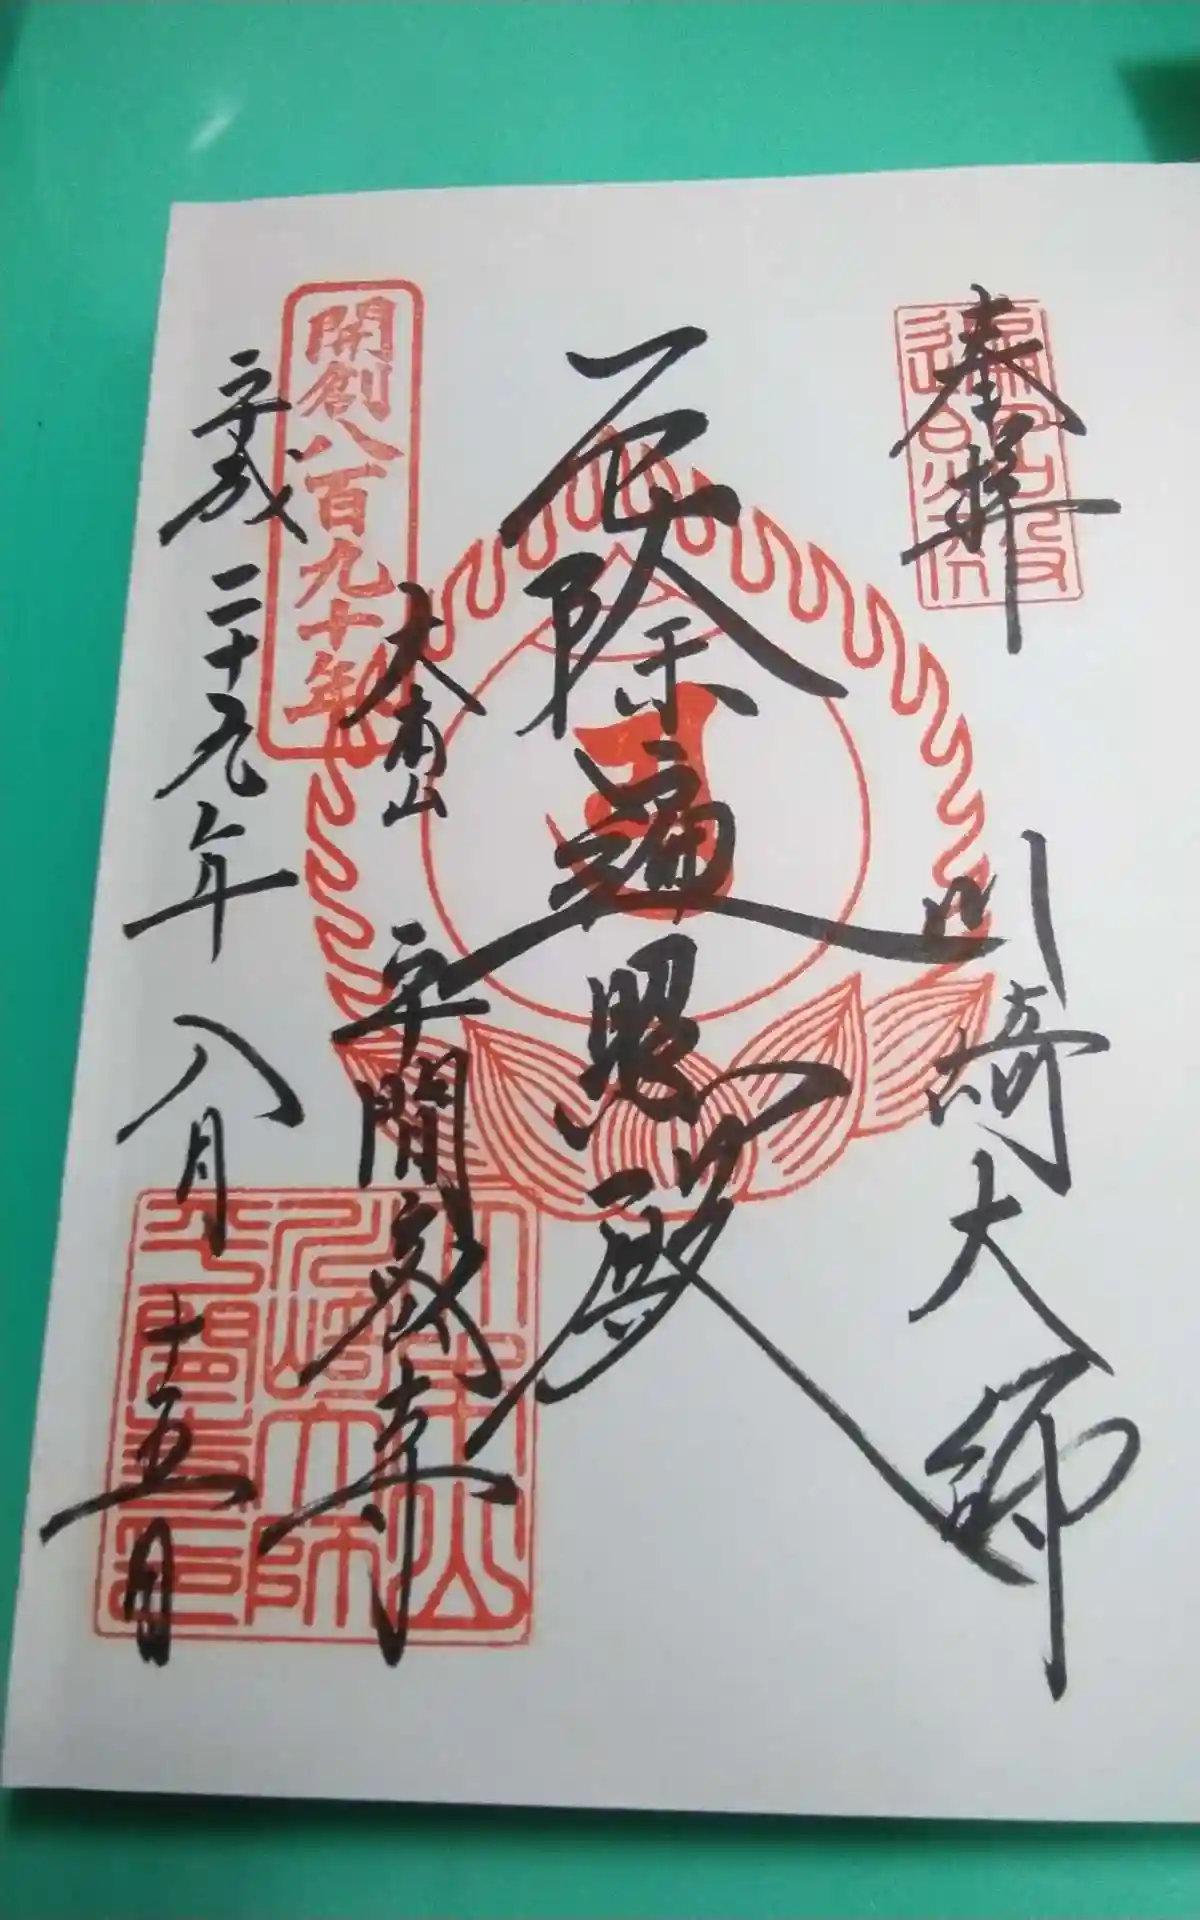 奉拝
川崎大師
厄除遍照殿
大本山 平間寺
開創八百九十年
平成二十九年八月十五日
大本山
川崎大師
平間寺印